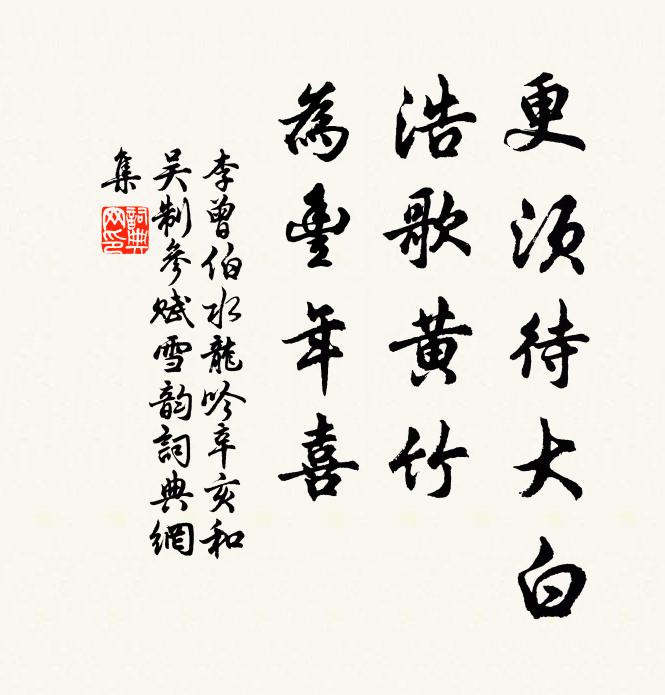 更須待大白
浩歌黃竹
為豐年喜
李曾伯水龍吟辛亥和
吴制參賦雪韵詞典網
集
詞典
网印